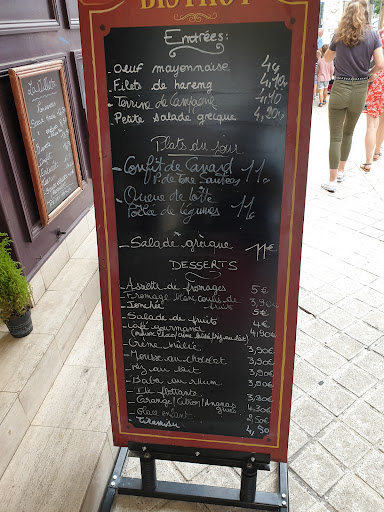 BISTROT
Entrées:
- Oeuf mayonnaise 4€
- Filets de hareng 4,10
- Terrine de Campagne 4,10
Petite salade grecque 4,20€
Plats du jour
- Confit de Canard 11
P. de Terre Sautées
- Queue de lotte
Poêlée de légumes 11€
- Salade grèque 11€
DESSERTS
- Assiette de fromages 5€
- Fromage blanc coulis de fruits 3,90
- Jonchée 5€
- Salade de fruits 4€
- Café gourmand 4,90
- Crème brûlée 3,90€
- Mousse au chocolat 3,90€
- riz au lait 3,90€
- Baba au rhum 3,90€
- Ile flottante 3,90€
- Orange/Citron/Ananas givrés 4,30€
- Glace enfant 2,50€
- Tiramisu 4,50